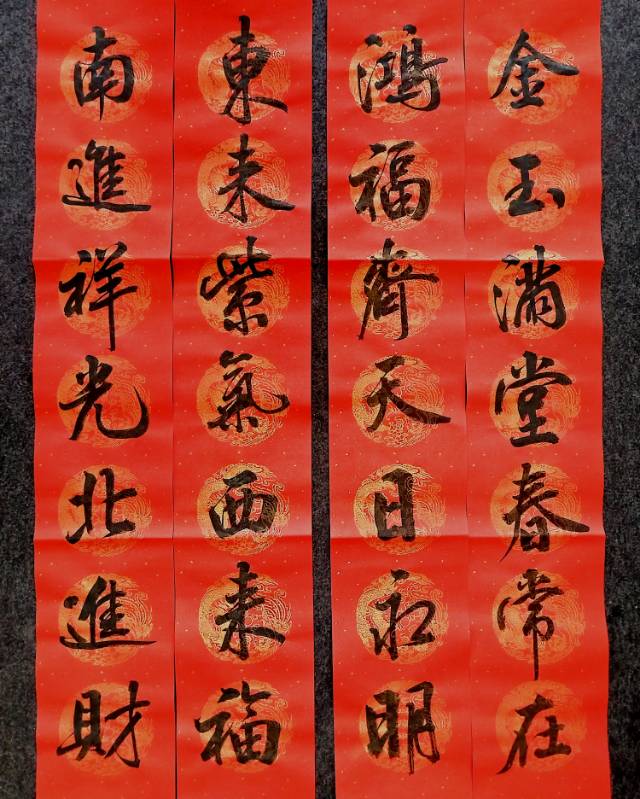 金玉滿堂春常在
鴻福齊天日永明
東来紫氣西来福
南進祥光北進財